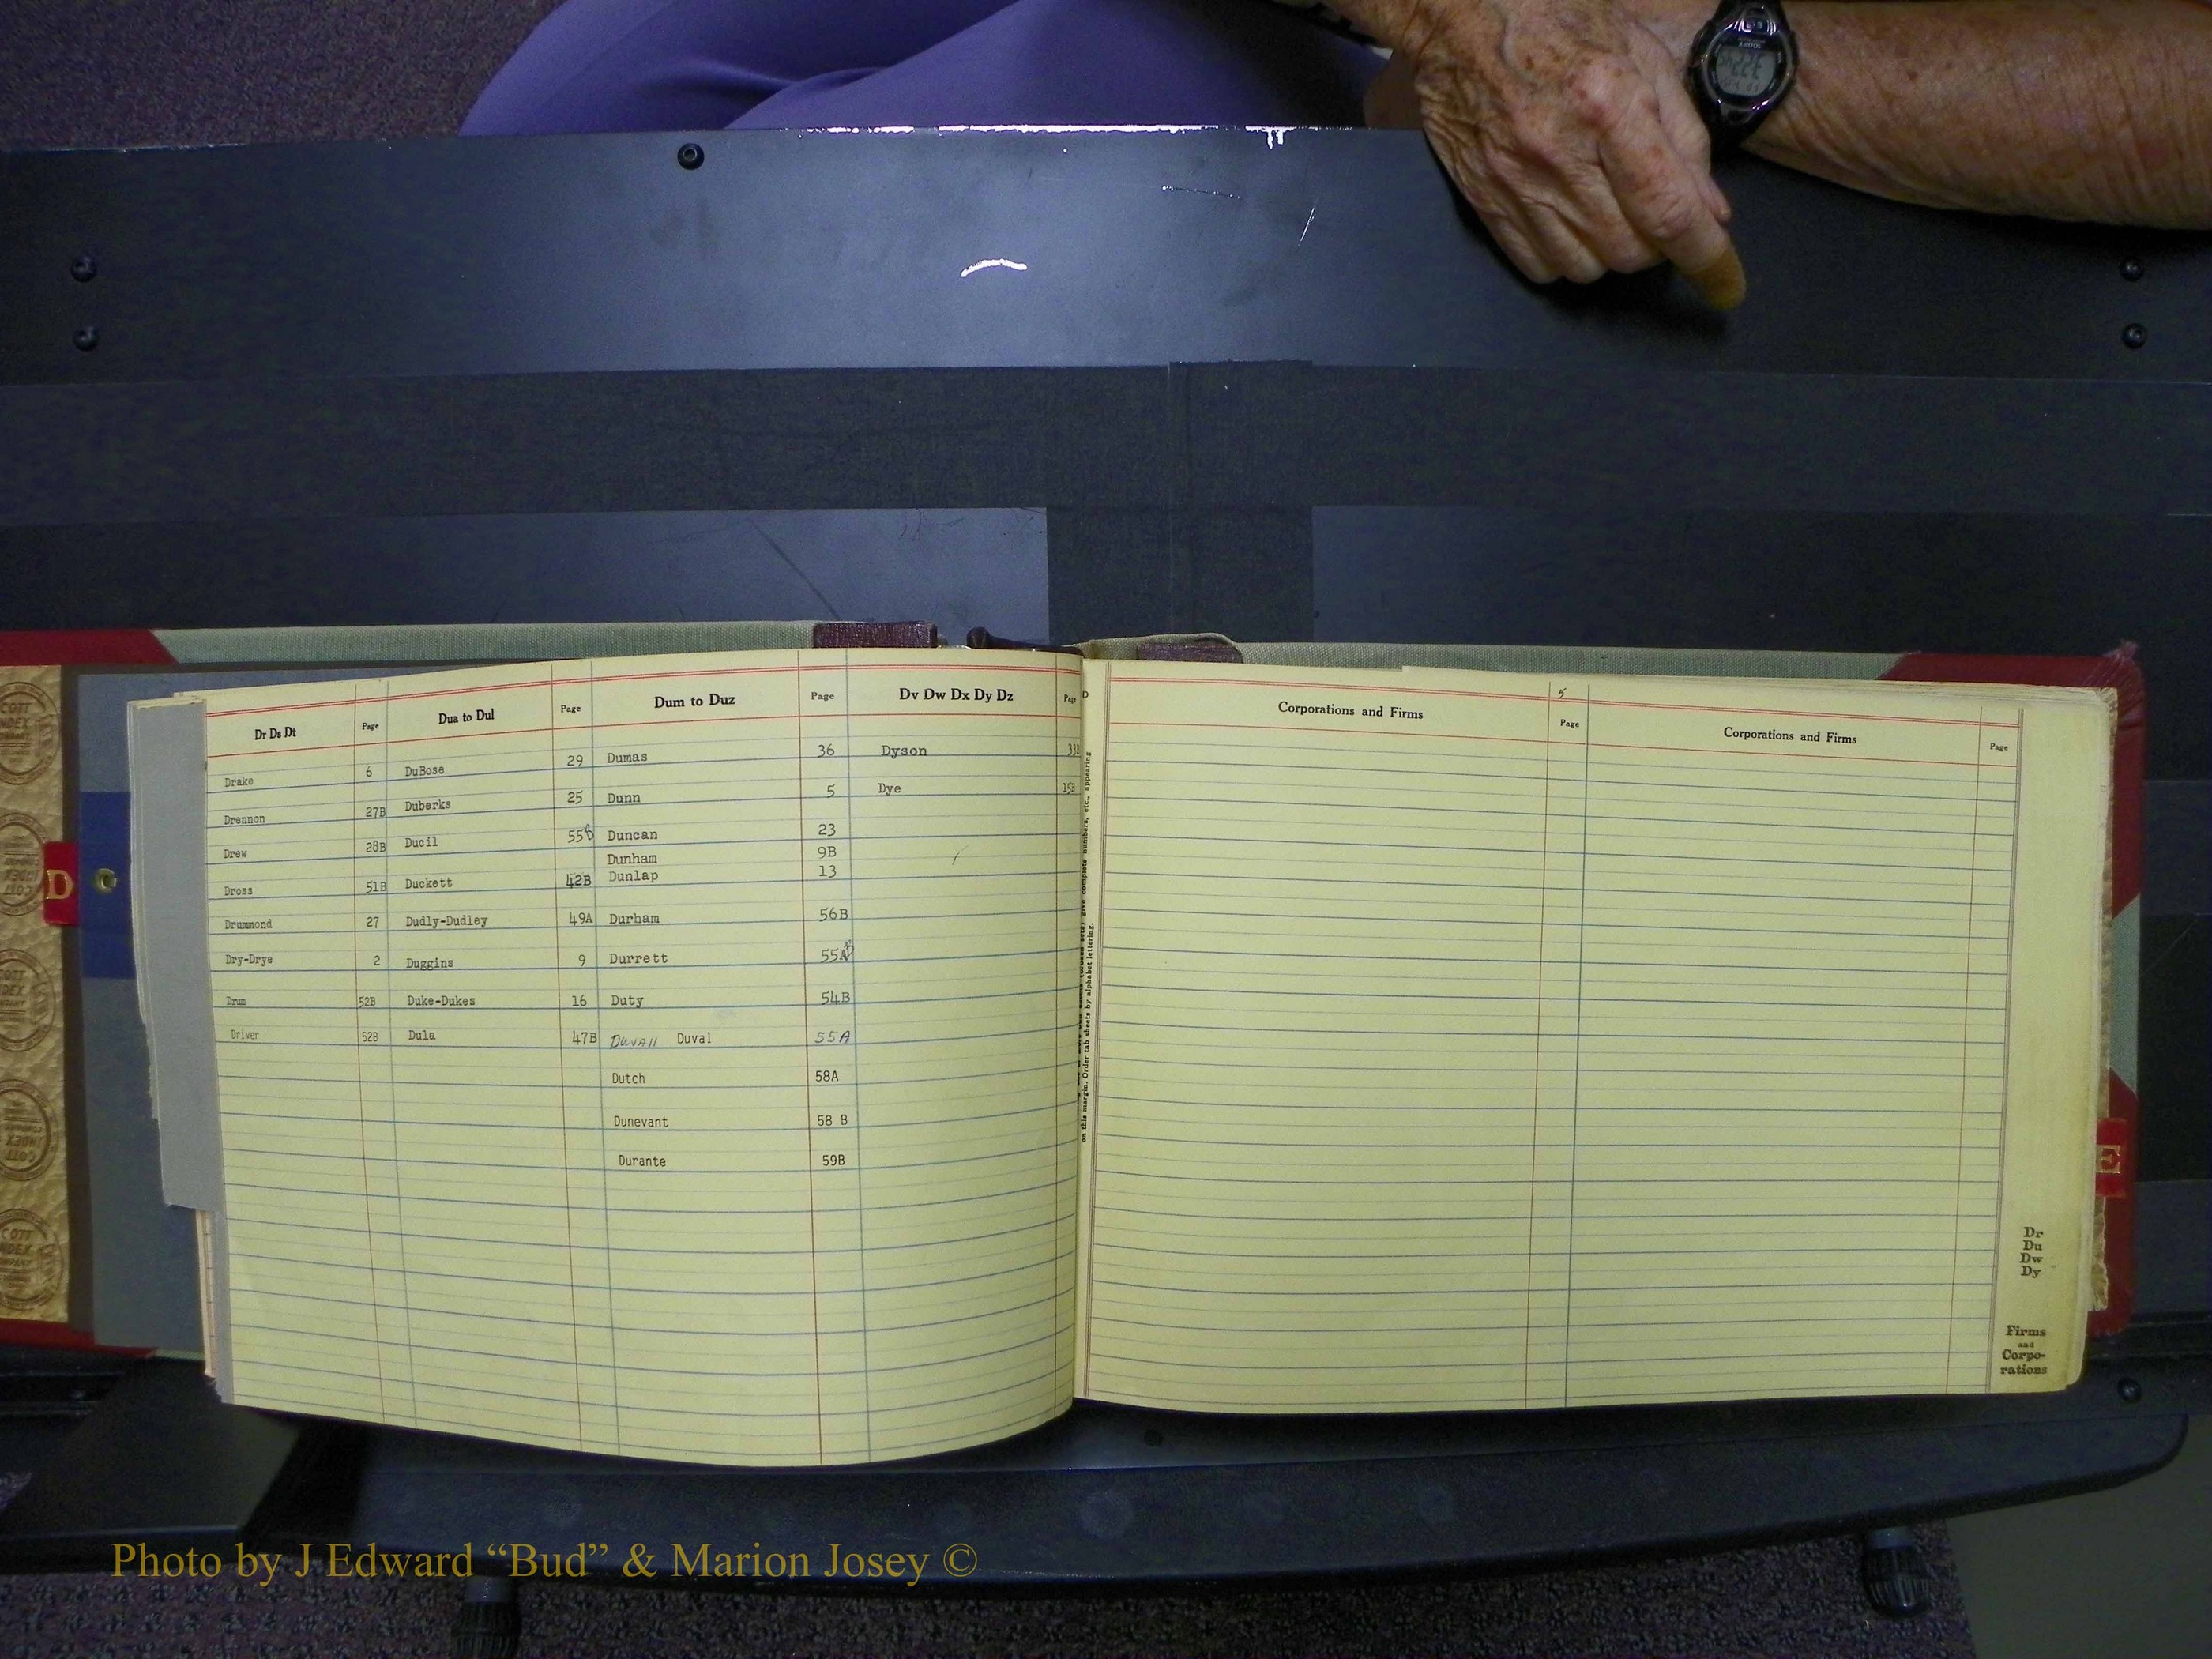 Dr Ds Dt Page Dua to Dul Page Dum to Duz Page Dv Dw Dx Dy Dz Page
Drake 6 DuBose 29 Dumas 36 Dyson 33B
Drennon 27B Duberks 25 Dunn 5 Dye 15B
Drew 28B Ducil 55B Duncan 23
Dunham 9B
Dross 51B Duckett 42B Dunlap 13
Drummond 27 Dudly-Dudley 49A Durham 56B
Dry-Drye 2 Duggins 9 Durrett 55A
Drum 52B Duke-Dukes 16 Duty 54B
Driver 52B Dula 47B Duvall Duval 55A
Dutch 58A
Dunevant 58 B
Durante 59B
D
numbers, etc., appearing
on this margin. Order tab sheets by alphabet lettering.
5
Corporations and Firms Page Corporations and Firms Page
Dr
Du
Dw
Dy
Firms
and
Corpo-
rations
D
E
Photo by J Edward “Bud” & Marion Josey ©